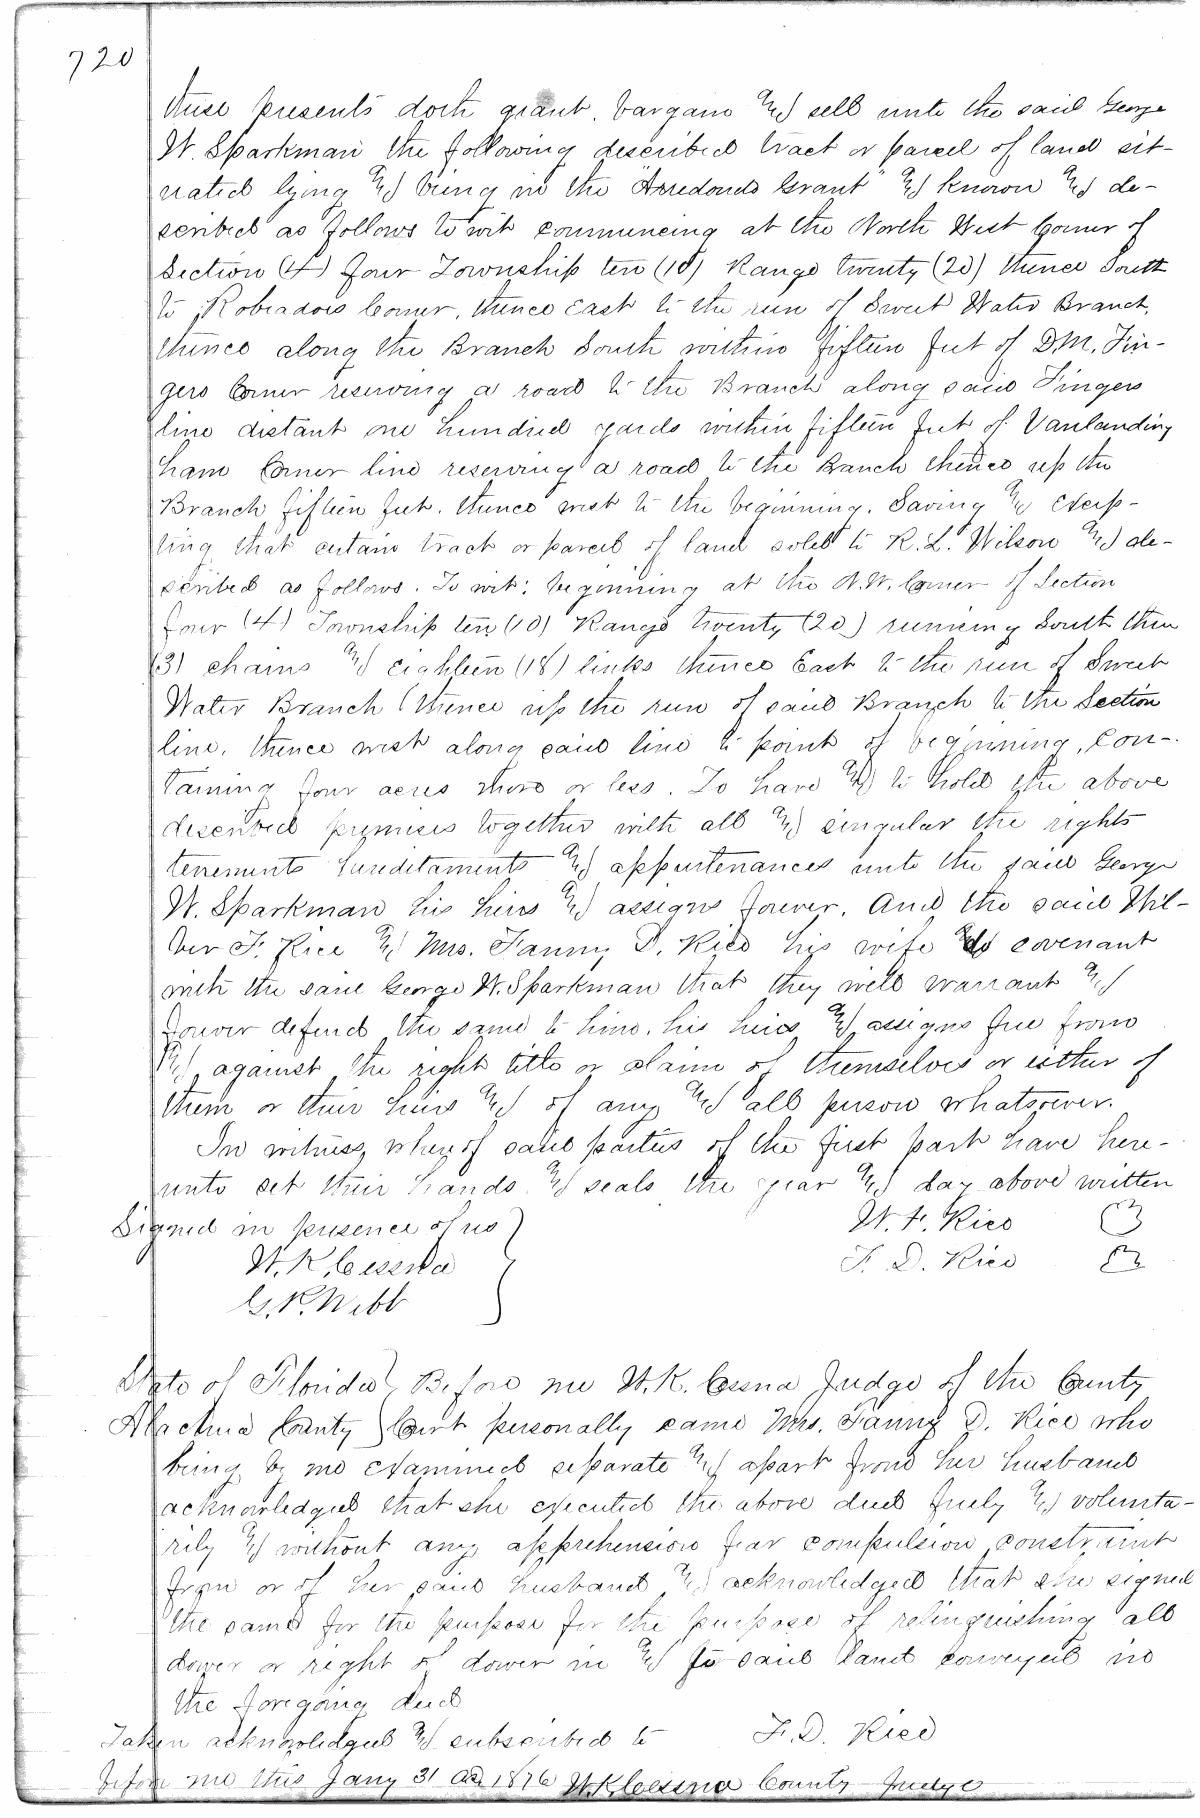 720
these presents doth grant, bargain & sell unto the said George
W. Sparkman the following described tract or parcel of land sit-
uated lying & being in the "Arredondo Grant" & known & de-
scribed as follows to wit commencing at the North West Corner of
Section (4) four Township ten (10) Range twenty (20) thence South
to Robeadois Corner, thence East to the run of Sweet Water Branch,
thence along the Branch South within fifteen feet of D.M. Fin-
gers Corner reserving a road to the Branch along said Fingers
line distant one hundred yards within fifteen feet of Vanlanding
ham Corner line reserving a road to the Branch thence up the
Branch fifteen feet. thence west to the beginning. Saving & Excep-
ting that certain tract or parcel of land sold to R. L. Wilson & de-
scribed as follows. To wit: beginning at the N.W. Corner of Section
four (4) Township ten (10) Range twenty (20) running South thre
(3) chains & eighteen (18) links thence East to the run of Sweet
Water Branch thence up the run of said Branch to the Section
line, thence west along said line to point of beginning, Con-
taining four acres more or less. To have & to hold the above
described premises together with all & singular the rights
tenements hereditaments & appurtenances unto the said George
W. Sparkman his heirs & assigns forever. And the said Wil-
ber F. Rice & Mrs. Fanny D. Rice his wife do covenant
with the said George W. Sparkman that they will warrant &
forever defend the same to him, his heirs & assigns free from
& against the right title or claim of themselves or either of
them or their heirs & of any & all person whatsoever.
In witness whereof said parties of the first part have here-
unto set their hands & seals the year & day above written
Signed in presence of us } W. F. Rice
W. K. Cessna F. D. Rice
G. P. Webb
State of Florida } Before me W. K. Cessna Judge of the County
Alachua County } Court personally came Mrs. Fanny D. Rice who
being by me examined separate & apart from her husband
acknowledged that she executed the above deed freely & volunta-
rily & without any apprehension fear compulsion constraint
from or of her said husband & acknowledged that she signed
the same for the purpose for the purpose of relinquishing all
dower or right of dower in & to said land conveyed in
the foregoing deed
Taken acknowledged & subscribed to F. D. Rice
before me this Jany 31 AD 1876 W. K. Cessna County Judge